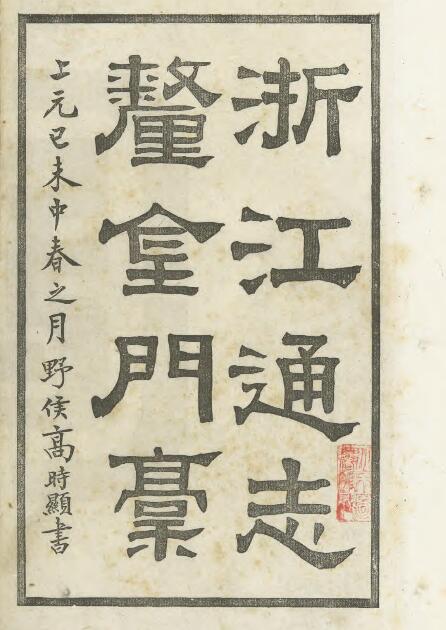 浙江通志
釐金門稾
上元己未中春之月野侯高時顯書